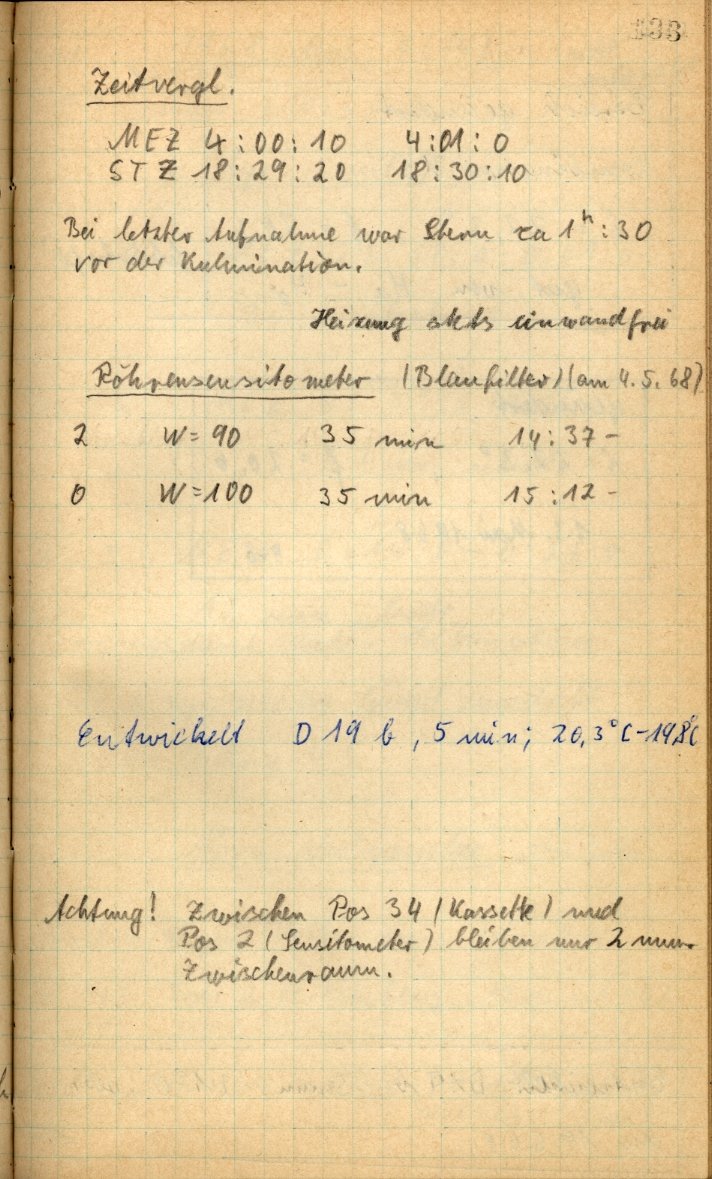 133
Zeitvergl.
MEZ 4:00:10 4:01:0
STZ 18:29:20 18:30:10
Bei letzter Aufnahme war Stern ca 1h:30
vor der Kulmination.
Heizung stets einwandfrei
Röhrensensitometer (Blaufilter) (am 4.5.68)
2 W=90 35 min 14:37-
0 W=100 35 min 15:12-
Entwickelt D 19 b, 5 min; 20,3°C-19,8°C
Achtung! Zwischen Pos 34 (Kassette) und
Pos 2 (Sensitometer) bleiben nur 2 mm
Zwischenraum.